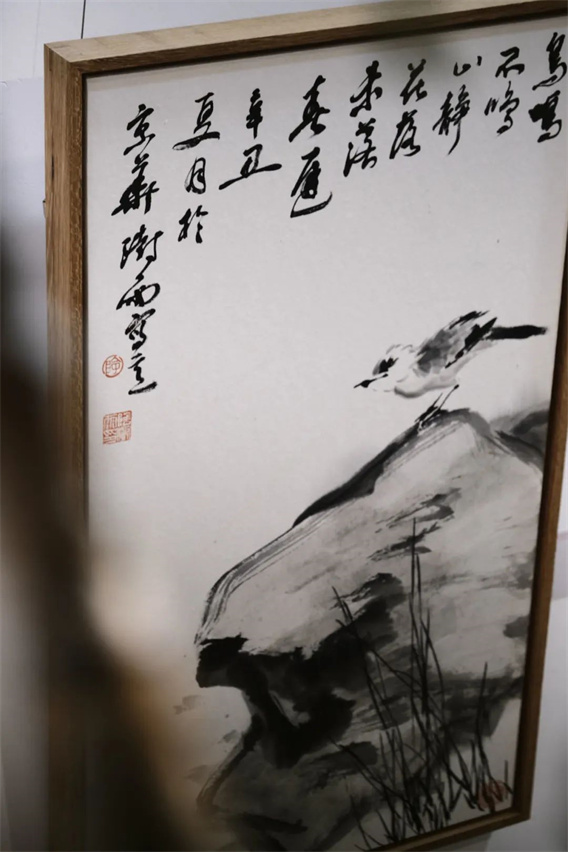 鳥鳴
不鳴
山靜
花落
未落
春庭
辛丑
夏月於
京華雨寫意